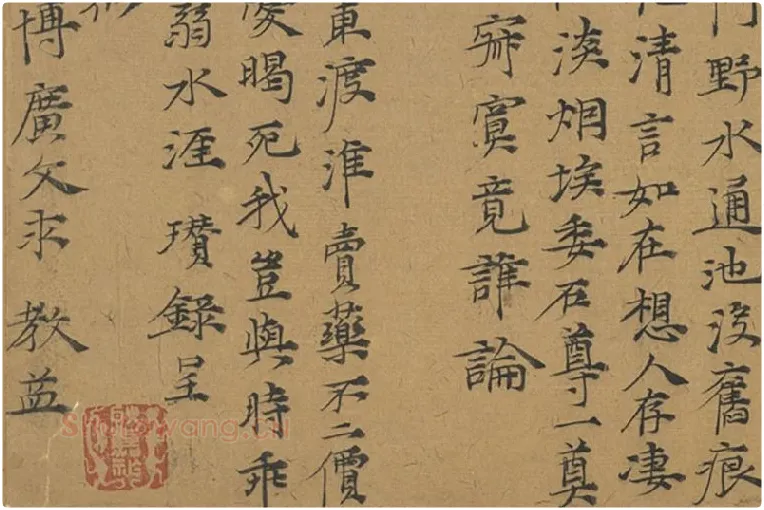 野水通池沒舊痕
清言如在想人存凄
淡烟埃委石尊一奠
寂寞竟誰論
東渡淮賣藥不二價
暍死我豈與時乖
翁水涯瓚錄呈
博廣文求教益